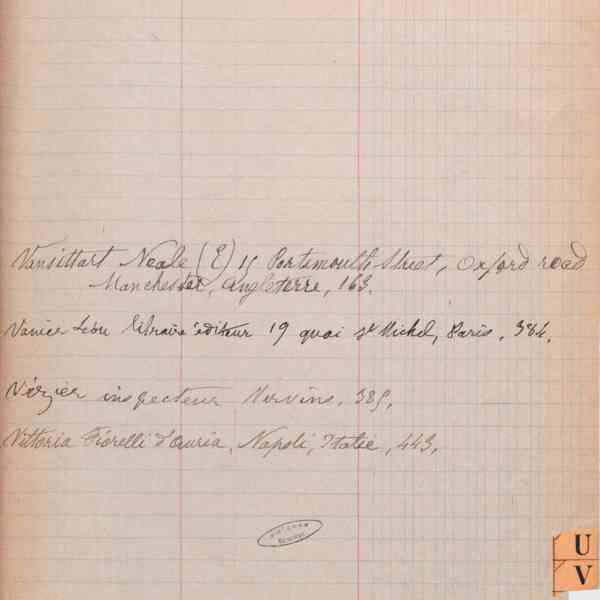 Vansittart Neale (E) 15 Portsmouth Street, Oxford road
Manchester, Angleterre, 163.
Vanier Léon libraire éditeur 19 quai St Michel, Paris. 384.
Vérzier inspecteur Vervins. 385.
Vittoria Fiorelli d'auria, Napoli, Italie, 443.
U
V